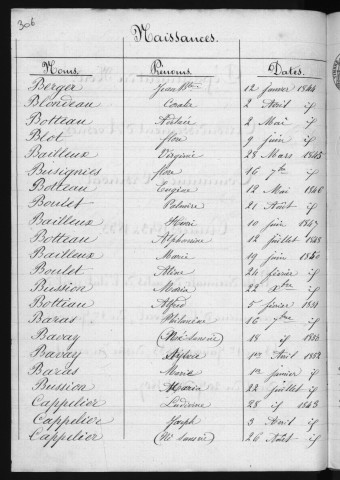 306
Naissances.
Noms. Prénoms. Dates.
Berger Jean Bte 12 janvier 1844
Blondeau Coralie 2 Avril id
Botteau 2 Mai id
Blot flore 9 juin id
Bailleux Virginie 28 Mars 1845
Busignies flore 16 7bre id
Botteau Eugène 12 Mai 1846
Boulet Palmire 21 Août id
Bailleux Henri 10 juin 1847
Botteau Alphonsine 12 juillet 1848
Bailleux Marie 19 juin 1850
Boulet Aline 26 février id
Bussion Maria 22 Xbre id
Botteau Alfred 5 février 1851
Baras Philomène 16 7bre id
Bavay (Mort-née) 18 id
Bavay Sylvie 1er Avril 1852
Baras Marie 1er janvier id
Bussion Maria 22 juillet id
Cappelier Ludivine 25 id 1843
Cappelier Joseph 3 Avril id
Cappelier 26 Août id